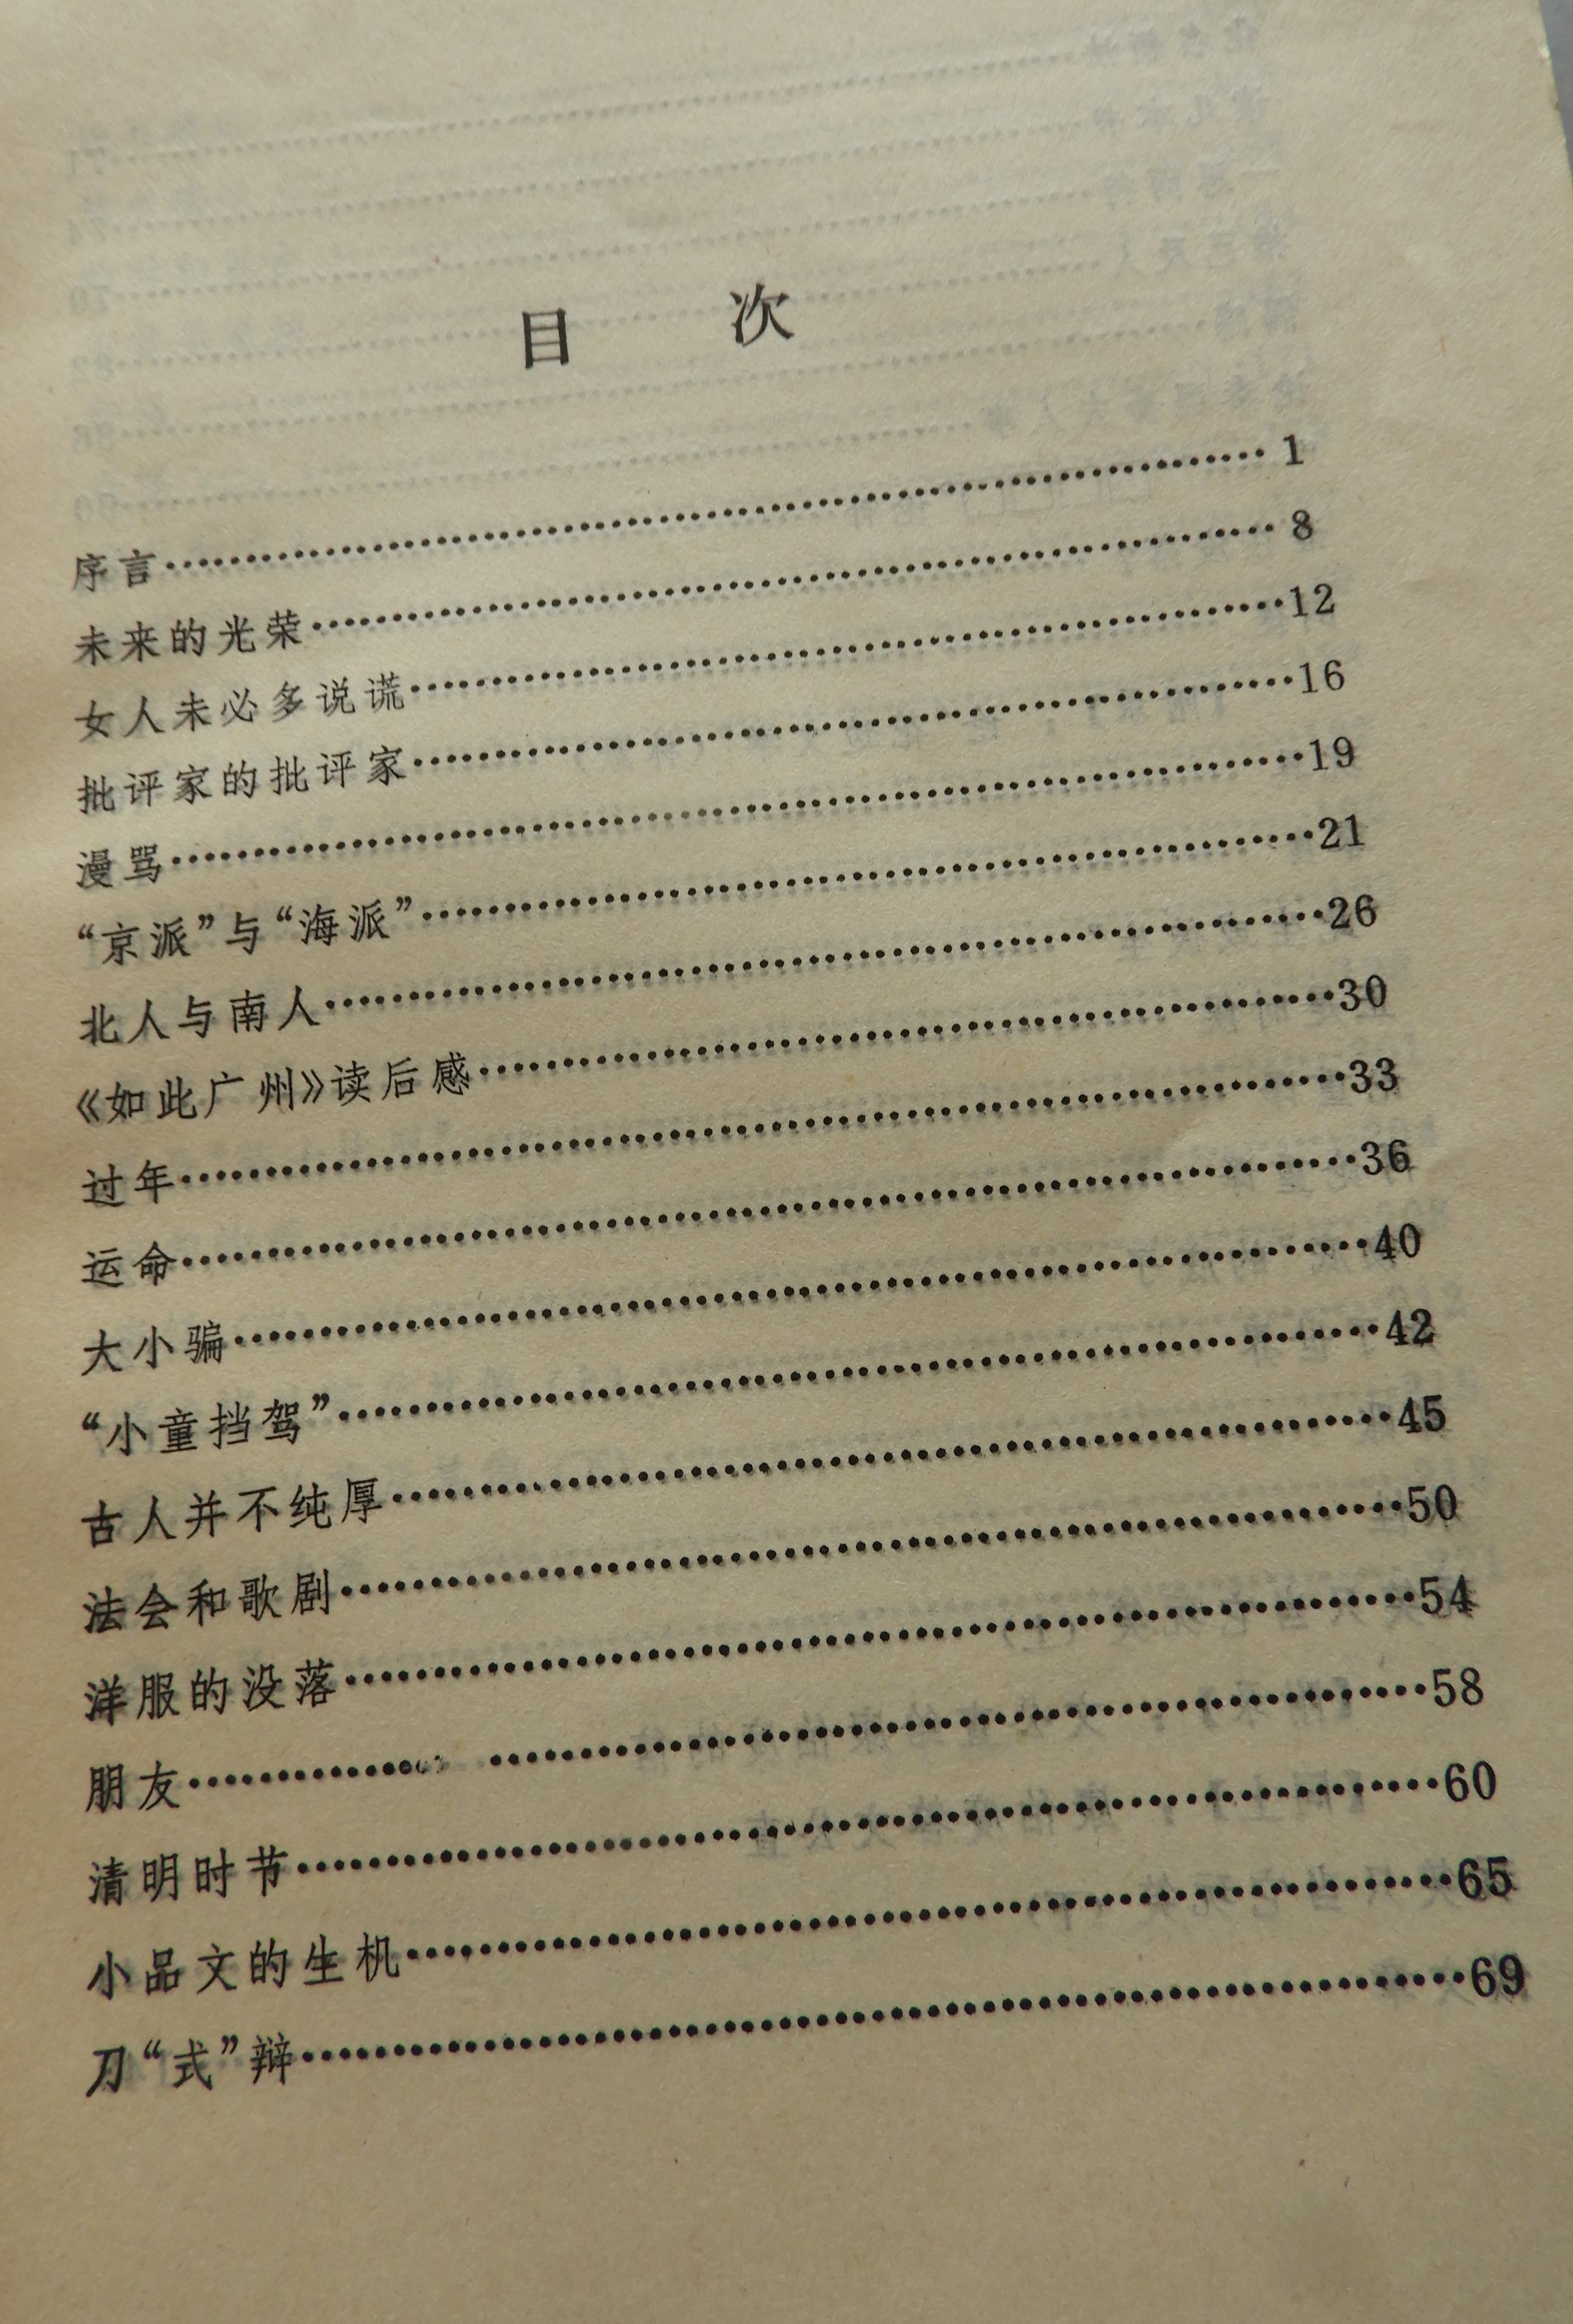 目 次
序言……………………………………………… 1
未来的光荣……………………………………… 8
女人未必多说谎…………………………………12
批评家的批评家…………………………………16
漫骂………………………………………………19
“京派”与“海派”…………………………………21
北人与南人………………………………………26
《如此广州》读后感………………………………30
过年………………………………………………33
运命………………………………………………36
大小骗……………………………………………40
“小童挡驾”………………………………………42
古人并不纯厚……………………………………45
法会和歌剧………………………………………50
洋服的没落………………………………………54
朋友………………………………………………58
清明时节…………………………………………60
小品文的生机……………………………………65
刀“式”辩…………………………………………69